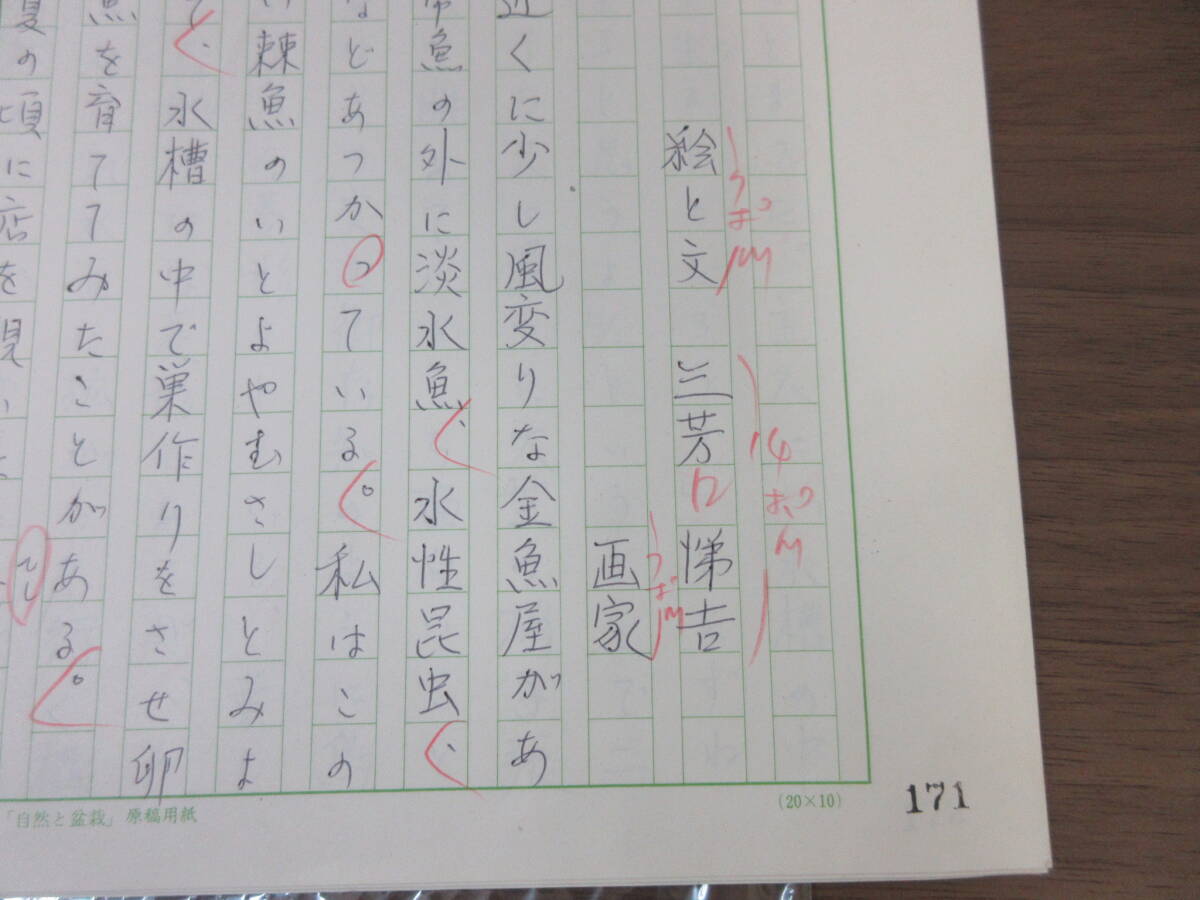 絵と文　三芳　悌吉
9ポM
14ポM
画家
9ポM
近くに少し風変りな金魚屋があ
魚の外に淡水魚、水性昆虫、
などあつかっている。私はこの
い棘魚のいとよやむさしとみよ
水槽の中で巣作りをさせ卵
魚を育ててみたことがある。
夏の頃に店を
「自然と盆栽」原稿用紙
(20×10)
171